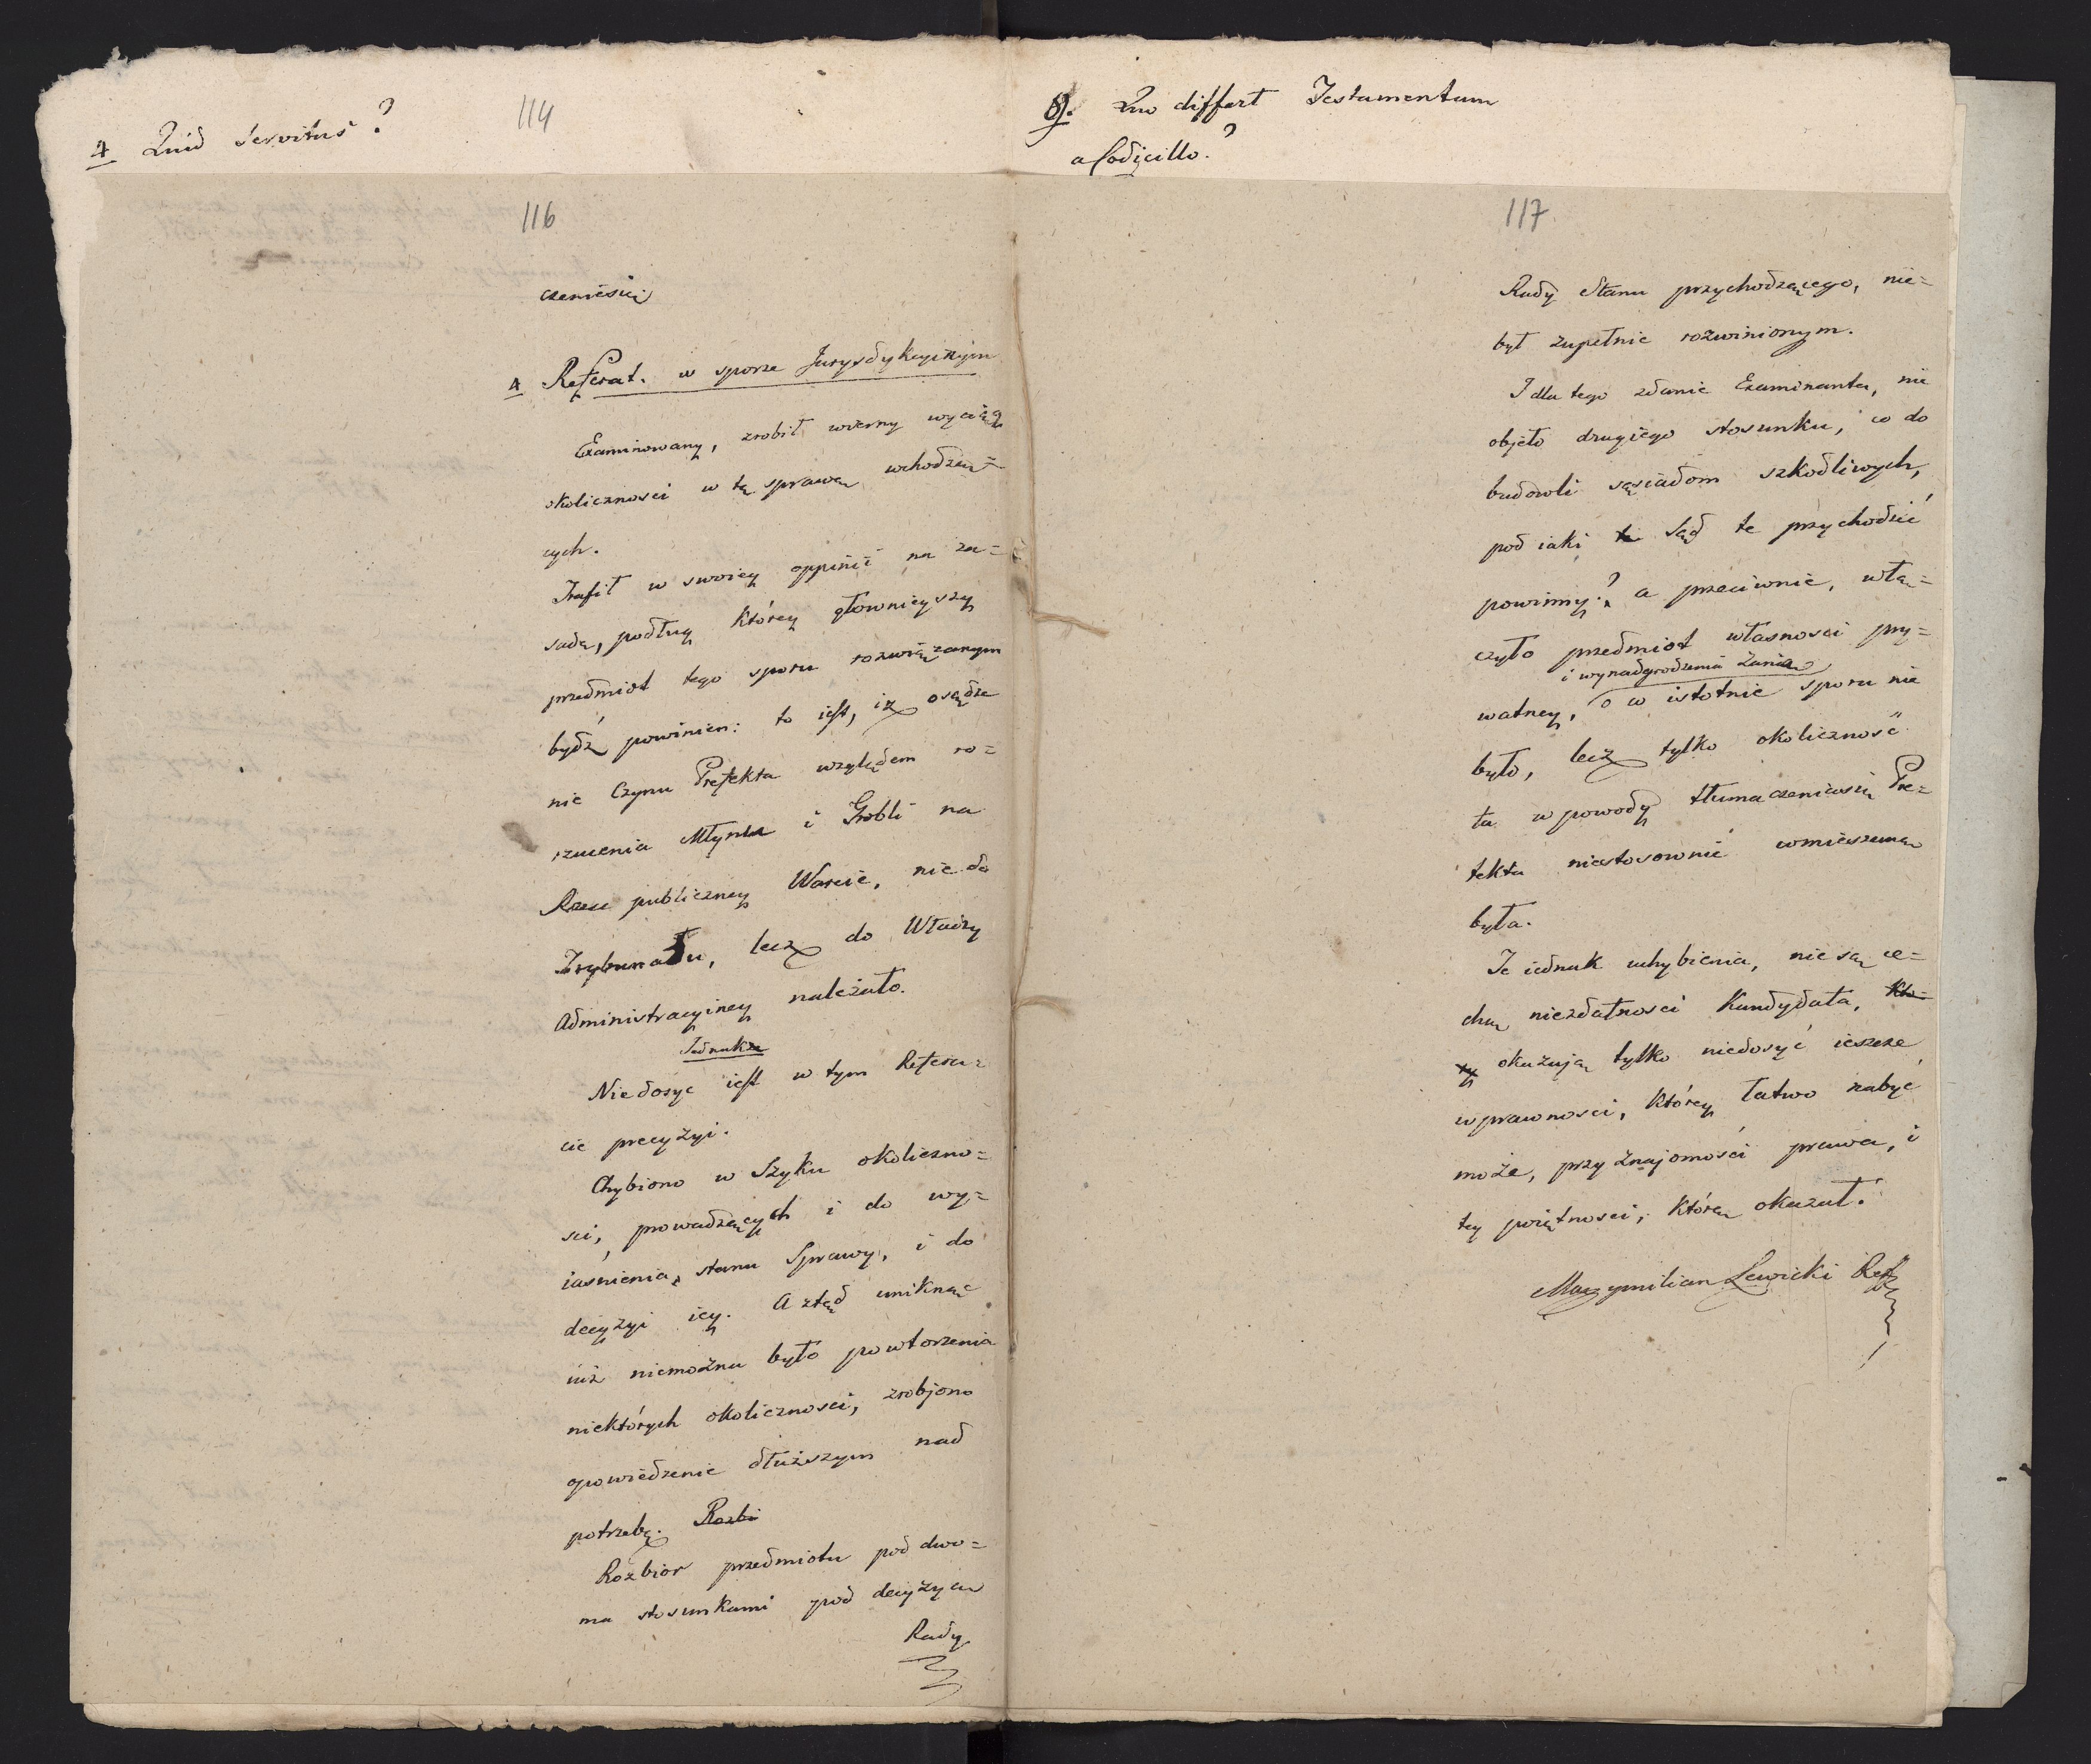 4 Quid servitus?
114
8. Quo differt Testamentum
a Codicillo?
116
czeniesię
4 Referat. w sporze Jurysdykcyinym
Examinowany, zrobił wierny wyciąg
okoliczności w tę sprawę wchodzą=
cych.
Trafił w swoiey oppinii na za=
sadę, podług którey głownieyszy
przedmiot tego sporu rozwiązanym
bydź powinien: to iest, iż osądze
nie Czynu Prefekta względem ro=
rzucenia Młyna i Grobli na
Rzece publiczney Warcie, nie do
Trybunału, lecz do Władzy
Administracyiney należało.
Jednakże
Niedosyc iest w tym Refera=
cie precyzyi.
Chybiono w Szyku okoliczno=
sci, prowadzących i do wy=
iaśnienia, stanu Sprawy, i do
decyzyi iey. A ztąd uniknąć
iuż niemożna było powtorzenia
niektórych okoliczności, zrobjono
opowiedzenie dłuższym nad
potrzebę. Rozbi
Rozbior przedmiotu pod dwo=
ma stosunkami pod decyzyą
Rady
117
Rady Stanu przychodzącego, nie=
był zupełnie rozwinionym.
I dla tego zdanie Examinanta, nie
objęło drugiego stosunku, co do
budowli sąsiadom szkodliwych,
pod iaki te Sąd te przychodzić
powinny? a przeciwnie, włą=
czyło przedmiot własności pry=
i wynadgrodzenia żania
watney, o w istotnie sporu nie
było, lecz tylko okoliczność
ta w powody tłumaczeniasię Pre=
fekta niestosownie wmieszana
była.
Te iednak uchybienia, nie są ce=
chą niezdatności Kandydata, któ=
ry okazują tylko niedosyć ieszcze
wprawności, którey łatwo nabyć
może, przy znajomości prawa, i
tey poiętności, którą okazał.
Maxymilian Lewicki Ref